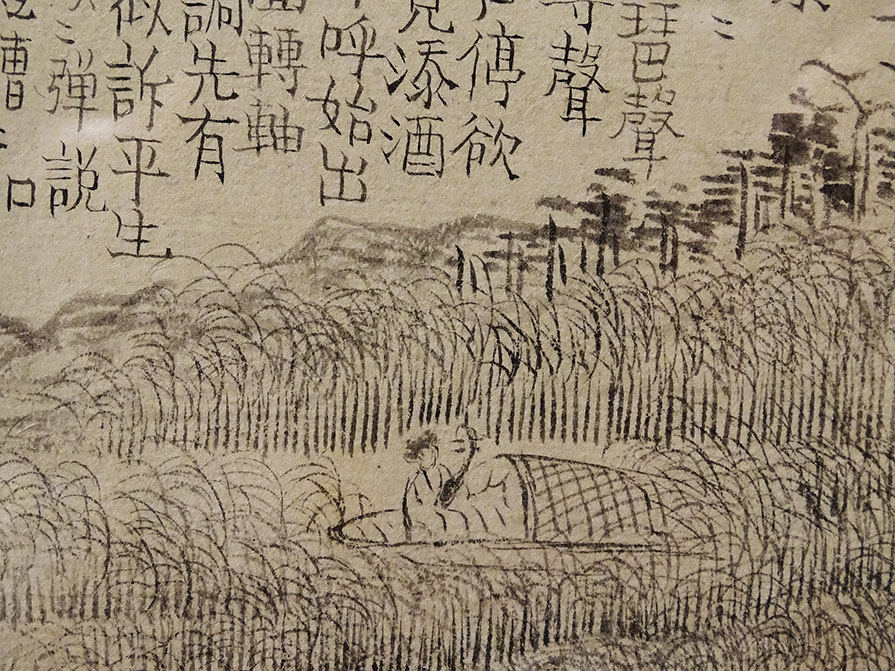 〻
琵琶聲
尋聲
停欲
見添酒
呼始出
轉軸
調先有
似訴平生
〻彈説
嘈〻